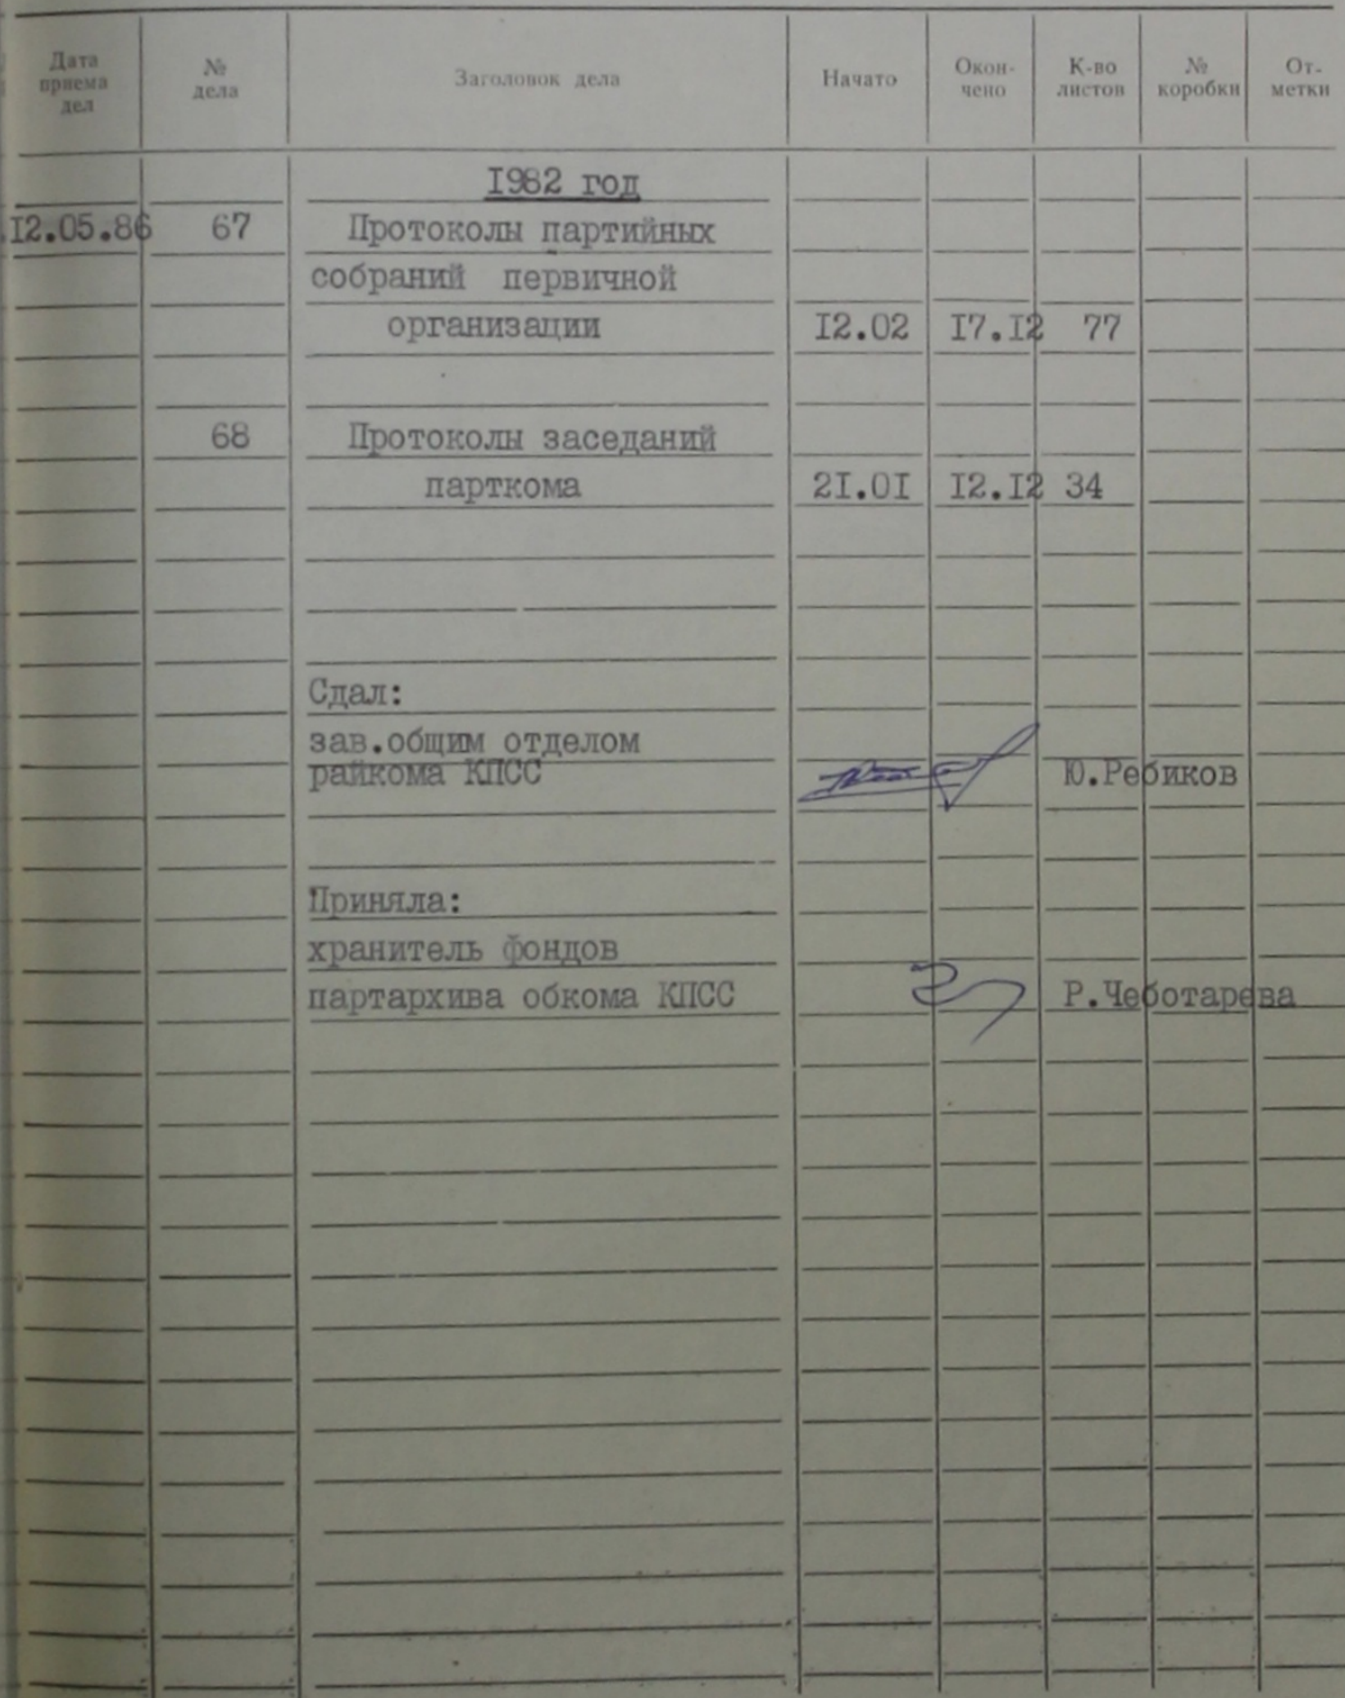 Дата приема дел № дела Заголовок дела Начато Окон- чено К-во листов № коробки От- метки
1982 год
12.05.86 67 Протоколы партийных
собраний первичной
организации 12.02 17.12 77
68 Протоколы заседаний
парткома 21.01 12.12 34
Сдал:
зав.общим отделом
райкома КПСС Ю.Ребиков
Приняла:
хранитель фондов
партархива обкома КПСС Р.Чеботарева